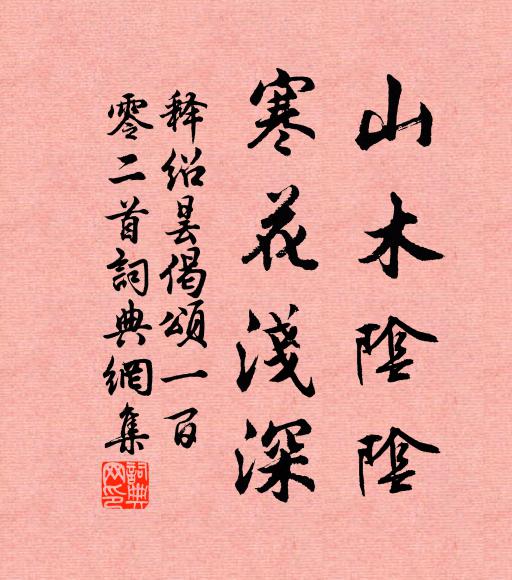 山木陰陰
寒花淺深
釋紹曇偈頌一百
零二首詞典網集
詞典网印